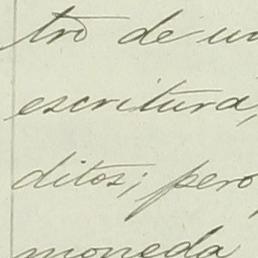 tro de un
escritura,
ditos; pero
moneda